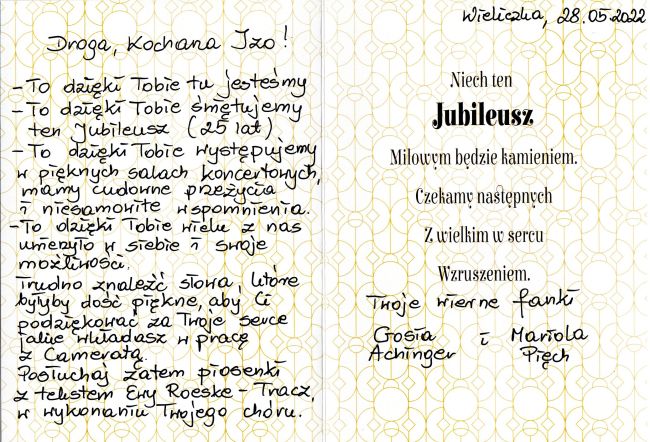 Droga, Kochana Izo!
- To dzięki Tobie tu jesteśmy
- To dzięki Tobie świętujemy
ten Jubileusz (25 lat)
- To dzięki Tobie występujemy
w pięknych salach koncertowych,
mamy cudowne przeżycia
i niesamowite wspomnienia.
- To dzięki Tobie wielu z nas
uwierzyło w siebie i swoje
możliwości.
Trudno znaleźć słowa, które
byłyby dość piękne, aby Ci
podziękować za Twoje serce
jakie wkładasz w pracę
z Cameratą.
Posłuchaj zatem piosenki
z tekstem Ewy Roeske - Tracz,
w wykonaniu Twojego chóru.
Wieliczka, 28.05.2022
Niech ten
Jubileusz
Milowym będzie kamieniem.
Czekamy następnych
Z wielkim w sercu
Wzruszeniem.
Twoje wierne fanki
Gosia i Mariola
Achinger Pięch